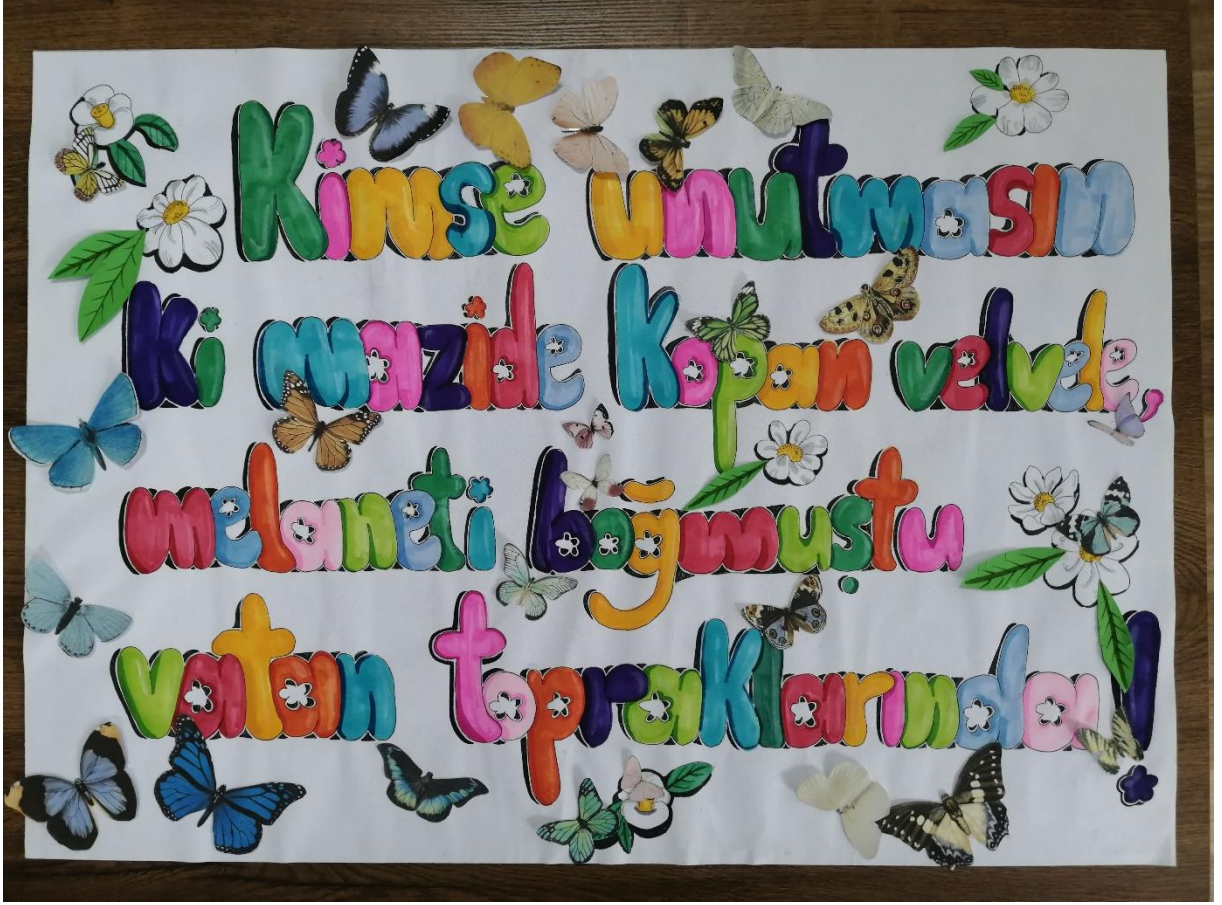 Kimse unutmasın
Ki mazide kopan velvele,
melaneti boğmuştu
vatan topraklarında!